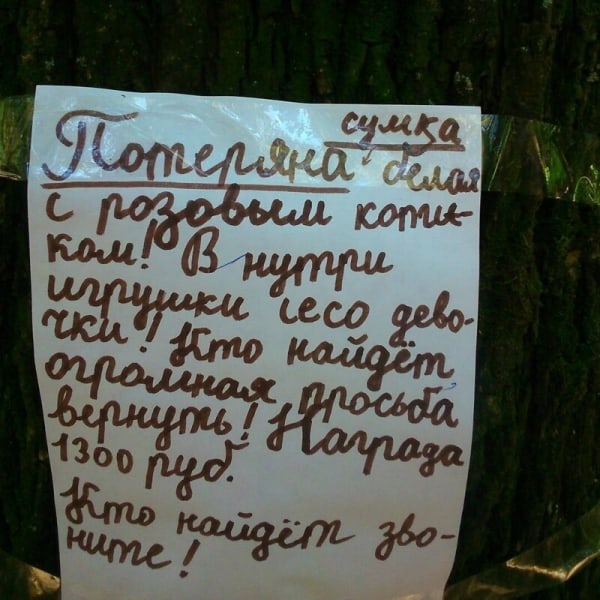 сумка
Потеряна белая
с розовым коти-
ком! В нутри
игрушки лесо дево-
чки! Кто найдёт
огромная просьба
вернуть! Награда
1300 руб.
Кто найдёт зво-
ните!